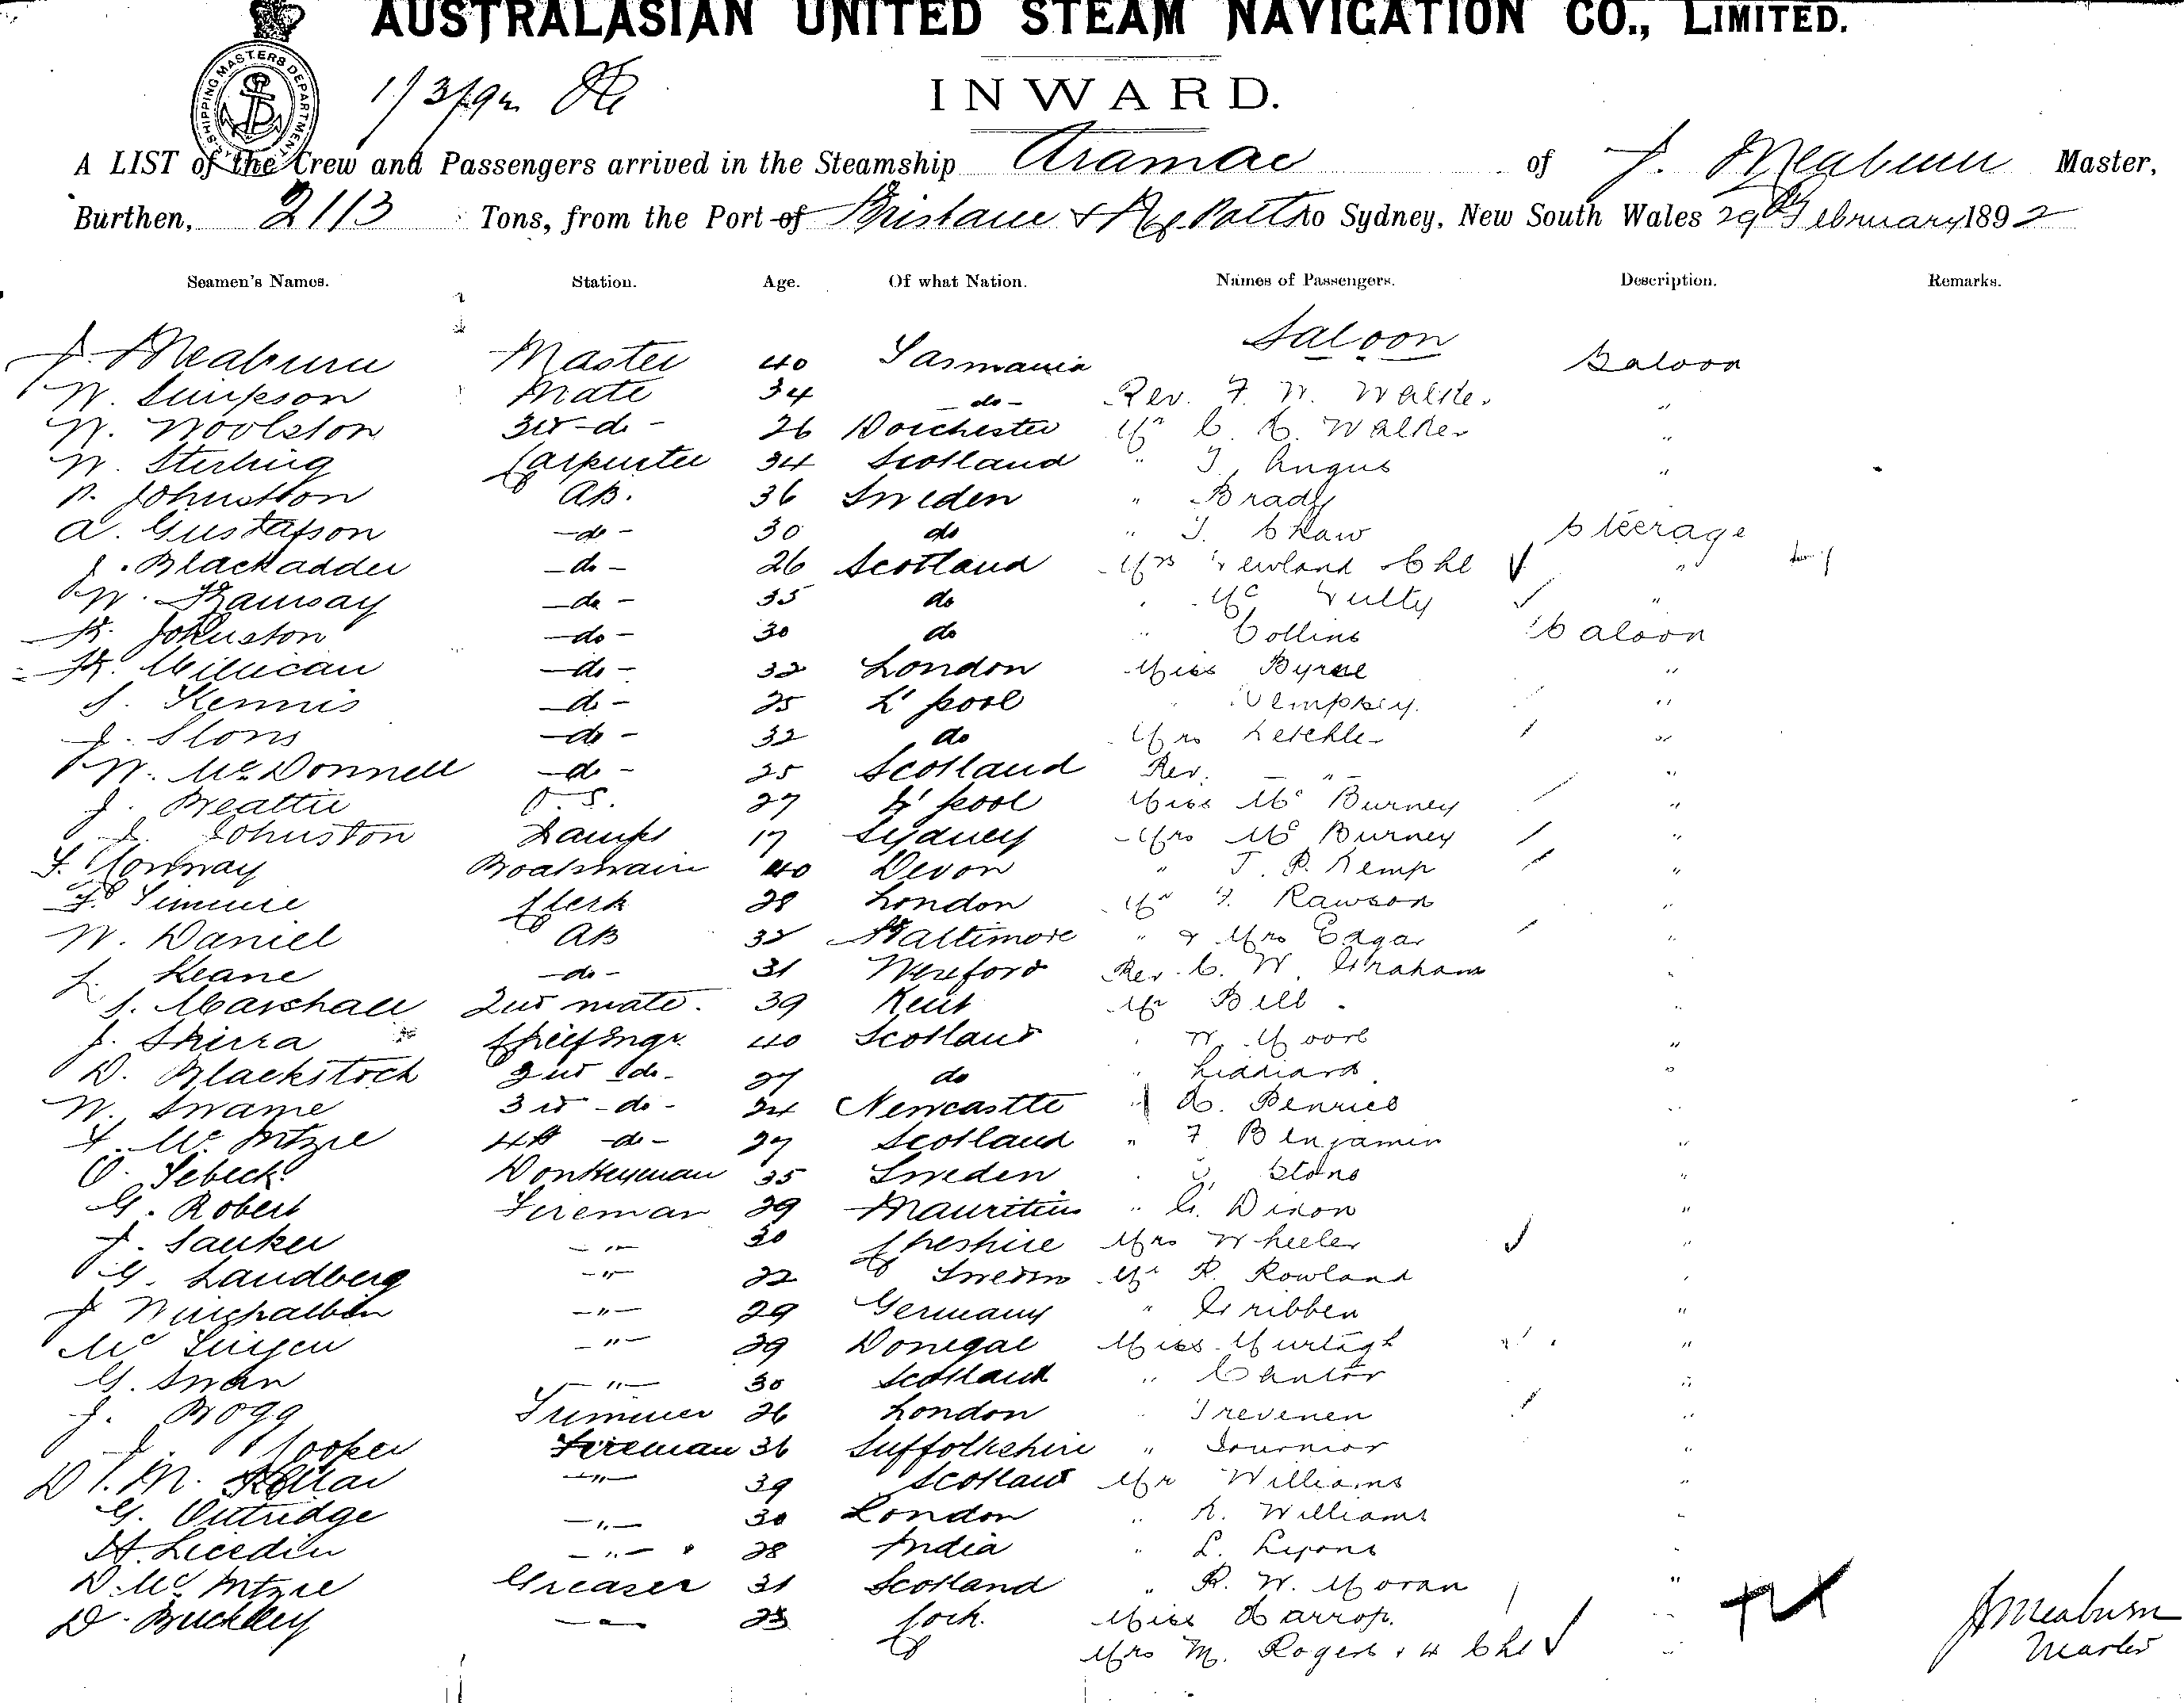 AUSTRALASIAN UNITED STEAM NAVIGATION CO., LIMITED.
SHIPPING MASTERS DEPARTMENT
1/3/92
INWARD.
A LIST of the Crew and Passengers arrived in the Steamship Aramac of J. Meaburn Master,
Burthen, 2113 Tons, from the Port of Brisbane & to Sydney, New South Wales 29th February 1892
Seamen's Names. Station. Age. Of what Nation. Names of Passengers. Description. Remarks.
Saloon
J. Meaburn Master 40 Tasmania Saloon
W. Simpson Mate 34 -do- Rev. F. W. Walker "
W. Woolston 3rd -do- 26 Dorchester Mr C. C. Walker "
W. Sterling Carpenter 34 Scotland " T. Angus "
P. Johnston AB. 36 Sweden " Brady
A. Gustafson -do- 30 do " T. Shaw Steerage
J. Blackadder -do- 26 Scotland Mrs Newland & Chl "
W. Ramsay -do- 35 do " Mc Nulty "
R. Johnston -do- 30 do " Collins Saloon
H. Millican -do- 32 London Miss Byrne "
J. Kennis -do- 25 L'pool " Dempsey "
J. Slons -do- 32 do Mrs "
W. McDonnell -do- 25 Scotland Rev. - " - "
J. Beattie O.S. 27 L'pool Miss Mc Burney "
J. Johnston Lamps 17 Sydney Mrs Mc Burney "
F. Conway Boatswain 40 Devon " J. P. Kemp "
F. Simmie Clerk 28 London Mr F. Rawson "
W. Daniel AB 32 Baltimore " & Mrs Edgar "
J. Keane -do- 31 Wexford Rev. C. W. Graham "
J. Marshall 2nd mate. 39 Kent Mr Bell "
J. Skirra Chief Engr. 40 Scotland " W. Moore "
D. Blackstock 2nd do- 27 do " Liddiard "
W. Swame 3rd -do- 24 Newcastle " "
F. McIntyre 4th -do- 27 Scotland " F Benjamin "
O. Sebeck Donkeyman 35 Sweden " Stone "
G. Robert Fireman 29 Mauritius " G. Dixon "
J. Sauker - " - 30 Cheshire Mrs Wheeler "
G. Landberg - " - 22 Sweden Mr R. Rowland "
J - " - 29 Germany " Gribben "
Mc - " - 29 Donegal Miss Murtagh "
G. Swan - " - 30 Scotland " Cantor "
J. Bogg Trimmer 26 London " Trevenen "
J. Cooper Fireman 36 Suffolkshire " Fournier "
D. M. Kellar - " - 39 Scotland Mr Williams "
G. Outridge - " - 30 London " A. Williams "
H. - " - 28 India " L. Lyons "
D. McIntyre Greaser 31 Scotland " R. W. Moran "
D. Buckley - " - 23 Cork. Miss Harrop. "
Mrs M. Rogers & 4 Chl "
J Meaburn
Master